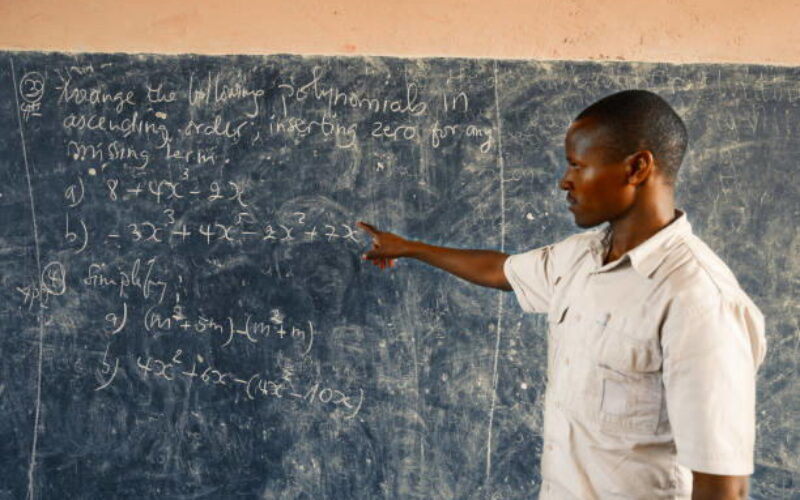 ③ Arrange the following polynomials in
ascending order, inserting zero for any
missing term.
a) 8 + 4x³ - 2x
b) - 3x³ + 4x⁵ - 2x² + 7x
④ Simplify:
a) (m² + 5m) - (m² + m)
b) 4x² + 6x - (4x² - 10x)